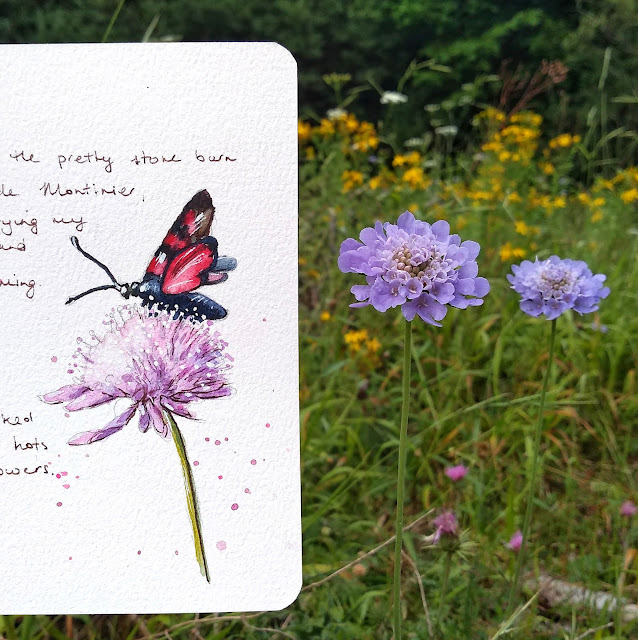 the pretty stone barn
de Montinier,
ying my
and
ning.
ked
hots
owers.